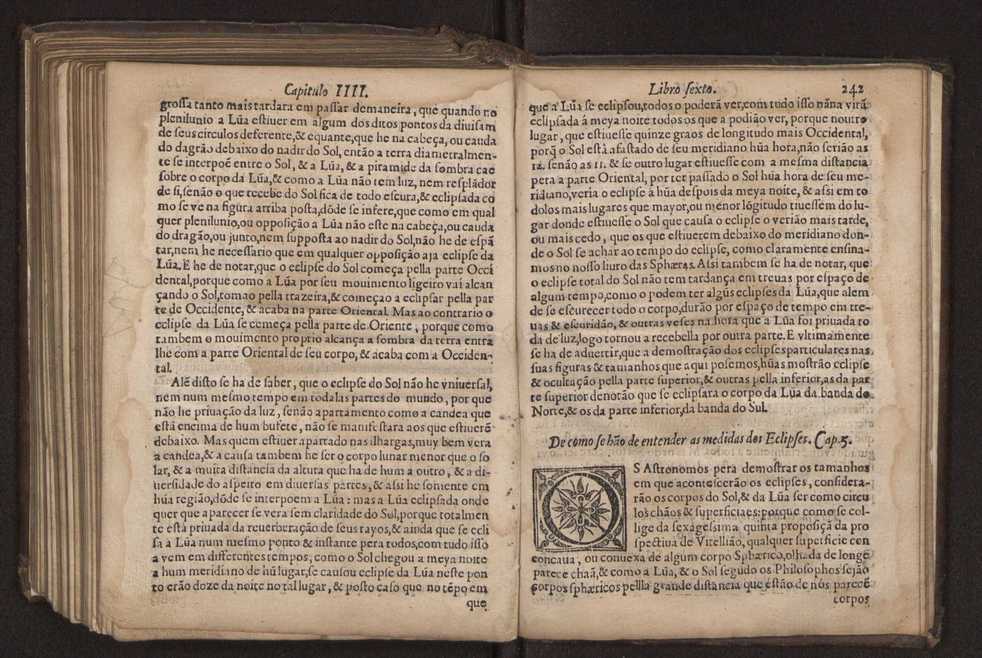 Capitulo IIII.
grossa tanto mais tardara em passar demaneira, que quando no
plenilunio a Lũa estiuer em algum dos ditos pontos da diuisam
de seus circulos deferente, & equante, que he na cabeça, ou cauda
do dagrão debaixo do nadir do Sol, então a terra diametralmen-
te se interpoẽ entre o Sol, & a Lũa, & a piramide da sombra cae
sobre o corpo da Lũa, & como a Lũa não tem luz, nem resplãdor
de si, senão o que recebe do Sol fica de todo escura, & eclipsada co
mo se ve na figura arriba posta, dõde se infere, que como em qual
quer plenilunio, ou opposição a Lũa não este na cabeça, ou cauda
do dragão, ou junto, nem supposta ao nadir do Sol, não he de espã
tar, nem he necessario que em qualquer opposição aja eclipse da
Lũa. E he de notar, que o eclipse do Sol começa pella parte Occi
dental, porque como a Lũa por seu mouimento ligeiro vai alcan
çando o Sol, tomao pella trazeira, & começao a eclipsar pella par
te de Occidente, & acaba na parte Oriental. Mas ao contrario o
eclipse da Lũa se começa pella parte de Oriente, porque como
tambem o mouimento proprio alcança a sombra da terra entra
lhe com a parte Oriental de seu corpo, & acaba com a Occiden-
tal.
Alẽ disto se ha de saber, que o eclipse do Sol não he vniuersal,
nem num mesmo tempo em todalas partes do mundo, por que
não he priuação da luz, senão apartamento como a candea que
està encima de hum bufete, não se manifestara aos que estiuerẽ
debaixo. Mas quem estiuer apartado nas ilhargas, muy bem vera
a candea, & a causa tambem he ser o corpo lunar menor que o so
lar, & a muita distancia da altura que ha de hum a outro, & a di-
uersidade do aspeito em diuersas partes, & assi he somente em
hũa região, dõde se interpoem a Lũa: mas a Lũa eclipsada onde
quer que aparecer se vera sem claridade do Sul, porque totalmen
te està priuada da reuerberação de seus rayos, & ainda que se ecli
psa a Lũa num mesmo ponto & instante pera todos, com tudo isso
a vem em differentes tempos, como o Sol chegou a meya noite
a hum meridiano de hũ lugar, se causou eclipse da Lũa neste pon
to erão doze da noite no tal lugar, & posto caso que no tẽpo em
que
Libro sexto.
242
que a Lũa se eclipsou, todos o poderã ver, com tudo isso nãna virã
eclipsada á meya noite todos os que a podião ver, porque noutro
lugar, que estiuesse quinze graos de longitudo mais Occidental,
porq̃ o Sol està afastado de seu meridiano hũa hora, não serião as
12. senão as 11. & se outro lugar estiuesse com a mesma distancia
pera a parte Oriental, por ter passado o Sol hũa hora de seu me-
ridiano, veria o eclipse à hũa despois da meya noite, & assi em to
dolos mais lugares que mayor, ou menor lõgitudo tiuessẽm do lu-
gar donde estiuesse o Sol que causa o eclipse o verião mais tarde,
ou mais cedo, que os que estiuerem debaixo do meridiano don-
de o Sol se achar ao tempo do eclipse, como claramente ensina-
mos no nosso liuro das Sphæras. Assi tambem se ha de notar, que
o eclipse total do Sol não tem tardança em treuas por espaço de
algum tempo, como o podem ter algũs eclipses da Lũa, que alem
de se escurecer todo o corpo, durão por espaço de tempo em tre-
uas & escuridão, & outras veses na hora que a Lũa foi priuada to
da de luz, logo tornou a recebella por outra parte. E vltimamente
se ha de aduertir, que a demostração dos eclipses particulares nas
suas figuras & tamanhos que aqui posemos, hũas mostrão eclipse
& ocultação pella parte superior, & outras pella inferior, as da par
te superior denotão que se eclipsara o corpo da Lũa da banda do
Norte, & os da parte inferior, da banda do Sul.
De como se hão de entender as medidas dos Eclipses. Cap. 5.
OS Astronomos pera demostrar os tamanhos
em que acontescerão os eclipses, considera-
rão os corpos do Sol, & da Lũa ser como circu
los chãos & superficiaes: porque como se col-
lige da sexagessima quinta proposiçã da pro
spectiua de Vitellião, qualquer superficie con
concaua, ou conuexa de algum corpo Sphærico, olhada de longe
parece chaã, & como a Lũa, & o Sol segũdo os Philosophos sejão
corpos sphæricos pellla grande distancia que estão de nós parecẽ
corpos